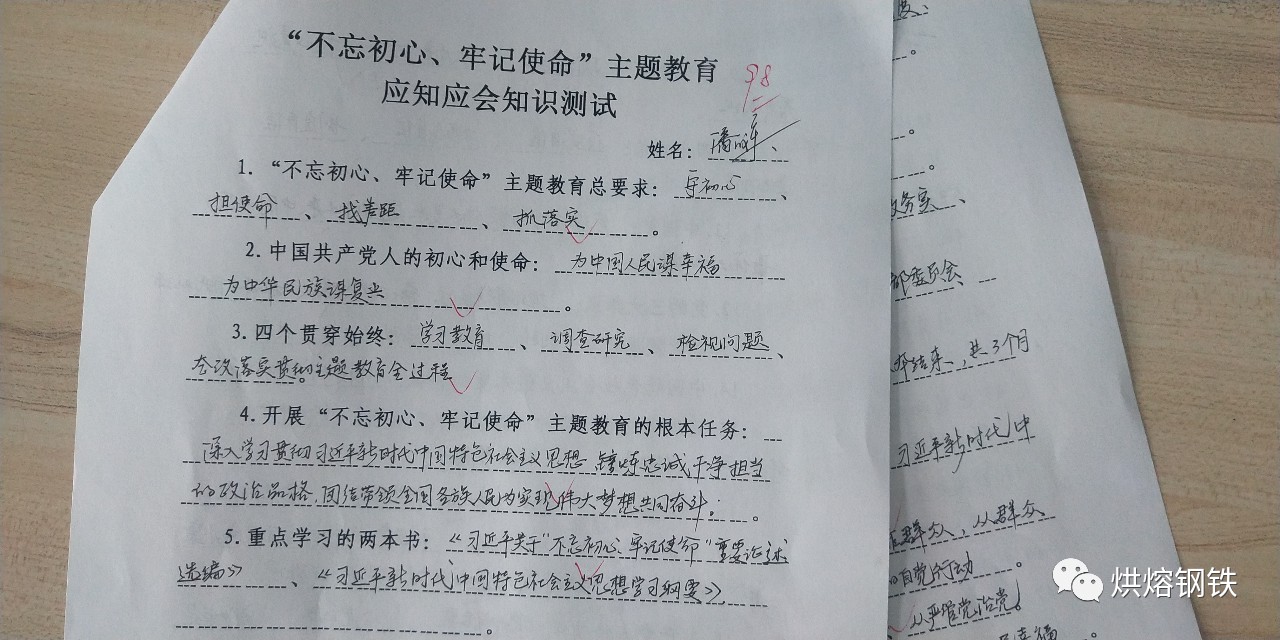 “不忘初心、牢记使命”主题教育
应知应会知识测试
98
姓名：
1.“不忘初心、牢记使命”主题教育总要求：守初心、
担使命、找差距、抓落实。
2.中国共产党人的初心和使命：为中国人民谋幸福
为中华民族谋复兴。
3.四个贯穿始终：学习教育、调查研究、检视问题、
落实贯彻主题教育全过程。
4.开展“不忘初心、牢记使命”主题教育的根本任务：
深入学习贯彻习近平新时代中国特色社会主义思想,锤炼忠诚干净担当
的政治品格,团结带领全国各族人民为实现伟大梦想共同奋斗。
5.重点学习的两本书：《习近平关于“不忘初心、牢记使命”重要论述
选编》、《习近平新时代中国特色社会主义思想学习纲要》。
务实、
部委员会
结束、共3个月
习近平新时代中
群众、从群众
自觉行动。
从严管党治党
幸福
烘熔钢铁